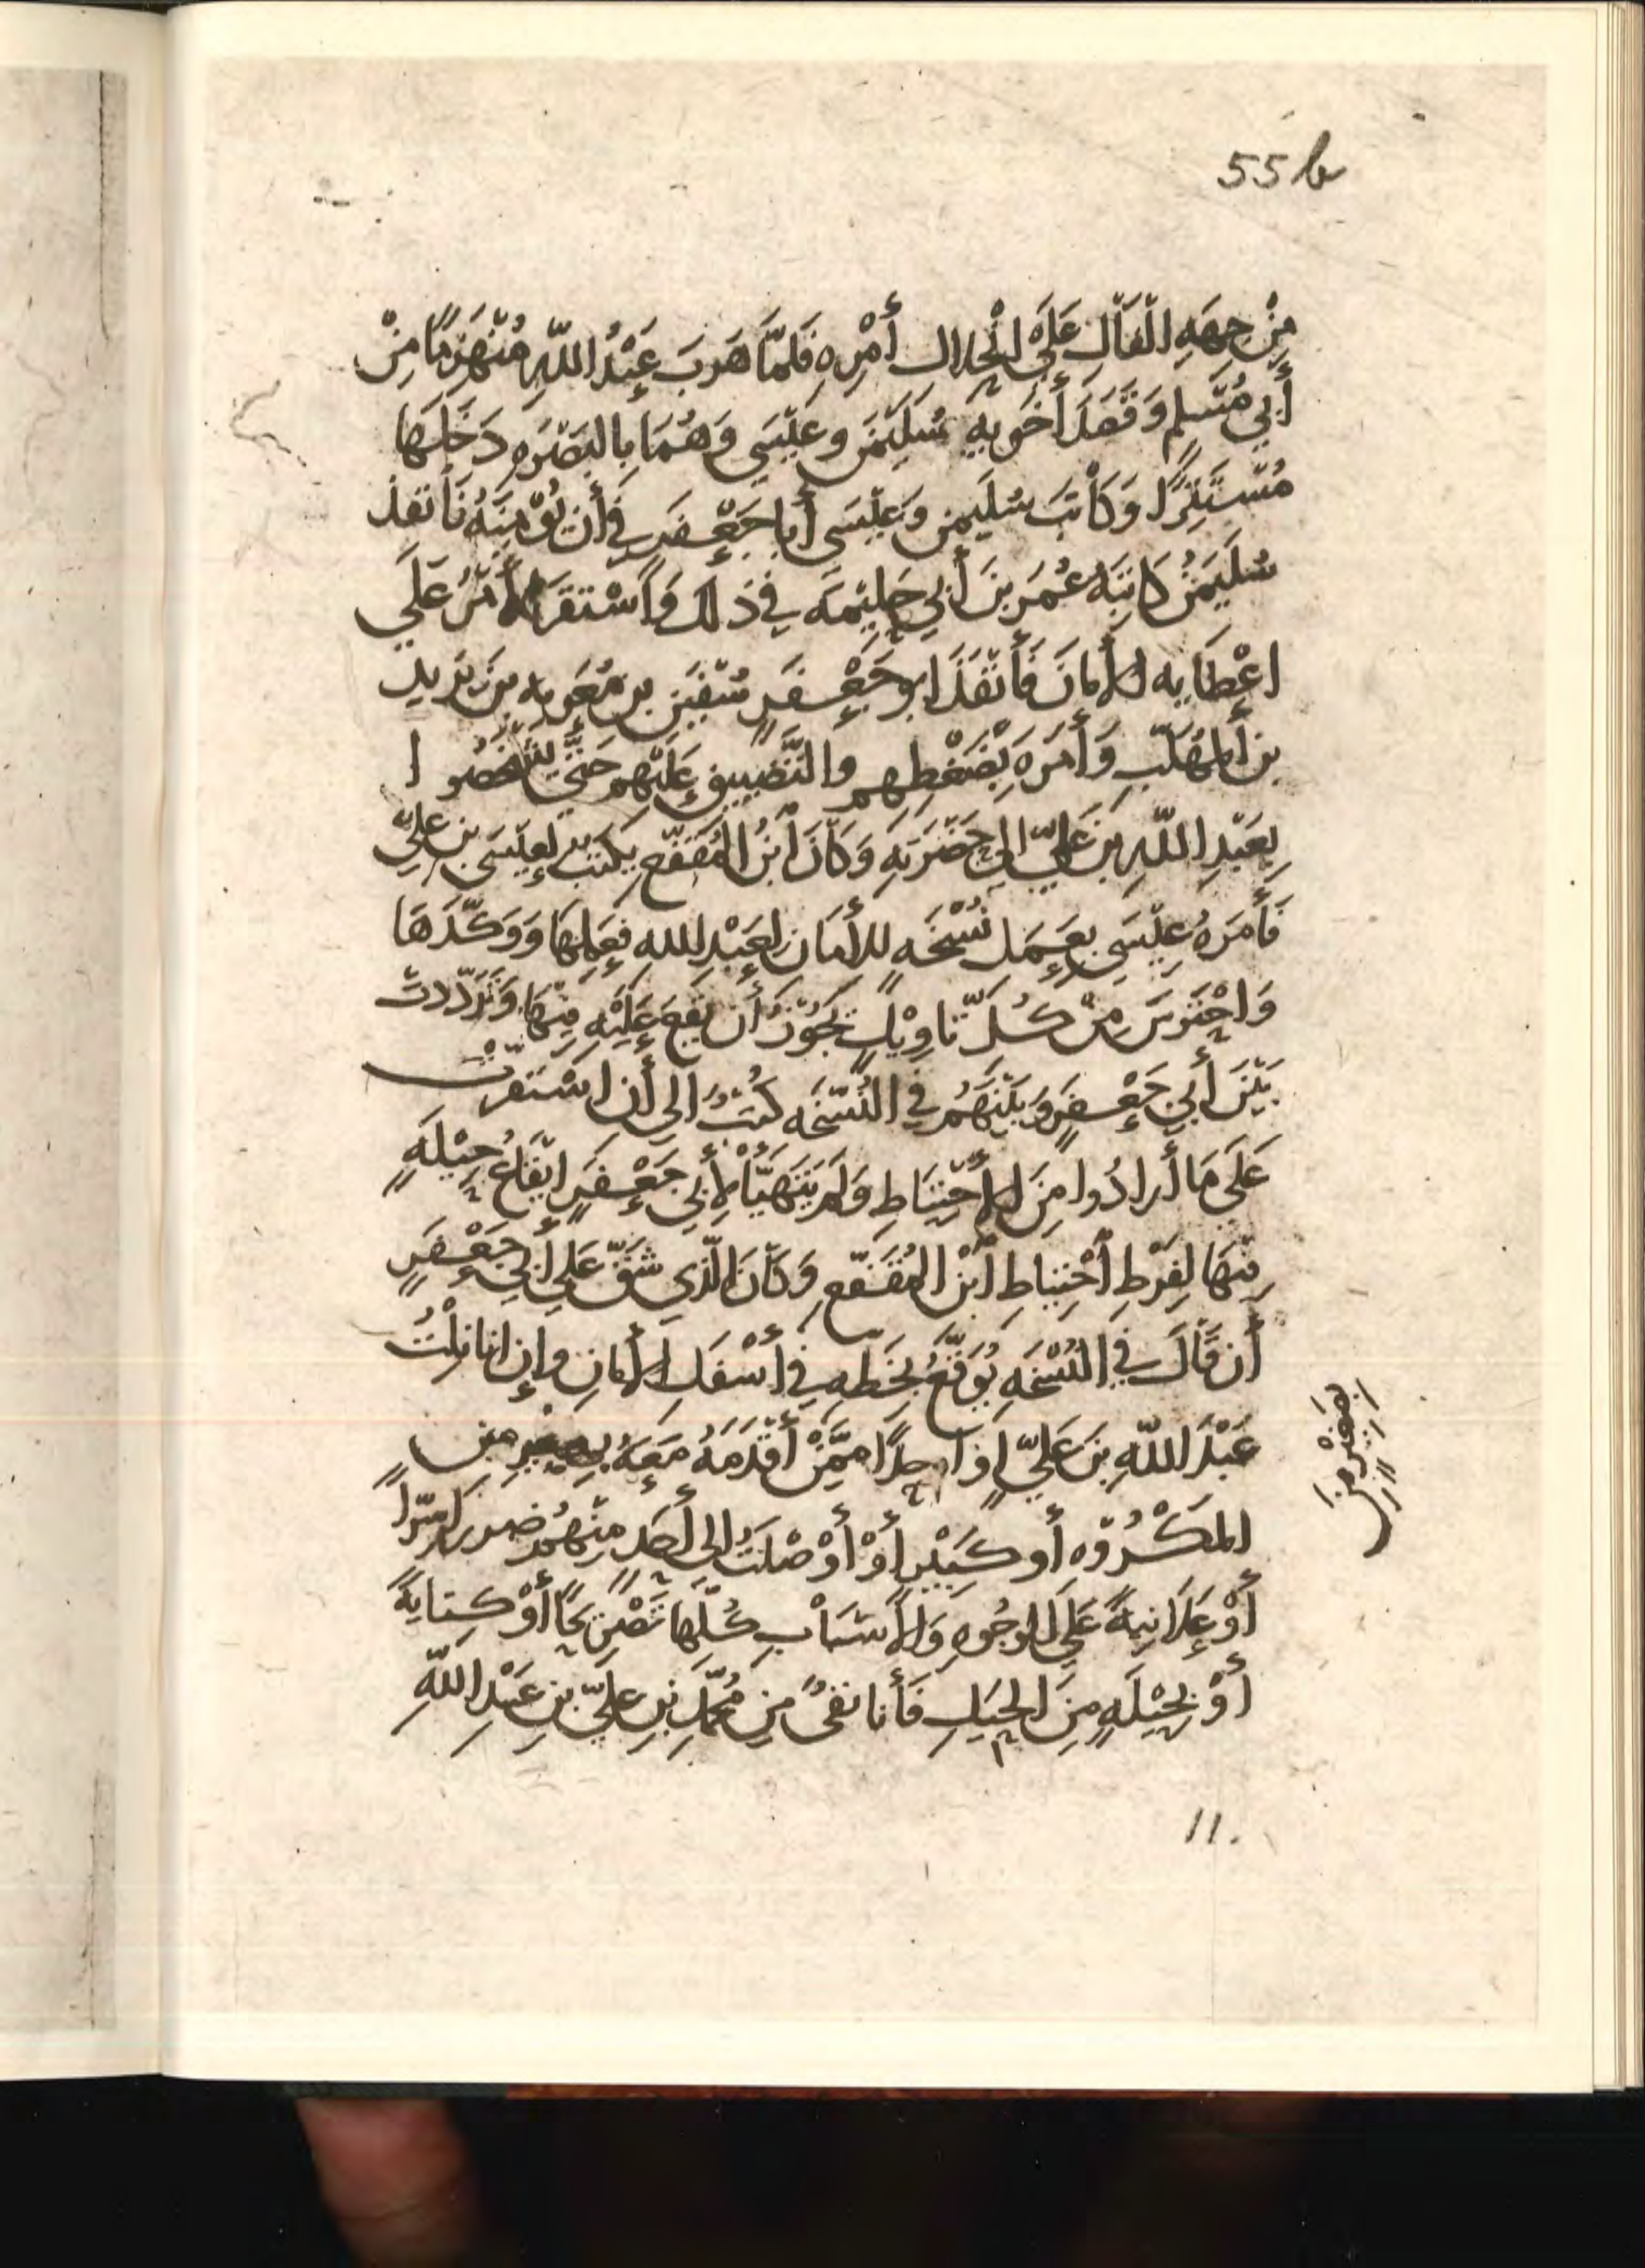 55b
مِنْ جِهَهِ الفَالِ عَلَى انْحِلال أَمْرِهِ فَلَمَّا هَرَبَ عَبْدُ اللَّهِ مُنْهَزِمًا مِنْ
أَبِي مُسْلِمٍ وَقَصَدَ أَخَوَيْهِ سُلَيْمَنَ وعِيْسَى وَهُمَا بِالبَصْرَهِ دَخَلَهَا
مُسْتَتِرًا وَكَاتَبَ سُلَيمن وَعِيْسَى أَبا جَعْفَرٍ فِي أَن يُؤْمِنَهُ فَأَنفَذَ
سُلَيمَنُ كَاتِبَهُ عُمَرَ بنَ أَبِي حَلِيْمَه فِي ذلك وَاسْتَقَرَّ الأَمْرُ عَلَى
اعْطَايِهِ الأَمانَ فَأَنْفَذَ ابو جَعْفَرٍ سُفْيَنَ بن مُعَويه بن يَزيد
بن المُهَلَّبِ وَأَمَرَهُ بِضَغْطِهِم والتَّضْيِيقِ عَلَيْهِم حَتَّى يُشْخِصُوا
بِعَبْدِ اللَّهِ بنِ عَلِيٍّ إلى حَضْرَتِهِ وَكَانَ ابْنُ المُقَفَّعِ يكتب لِعِيْسَى بن عليٍّ
فَأَمَرَهُ عِيْسَى بِعَمَل نُسْخَهٍ للأَمَان لِعَبْدِ اللهِ فَعَمِلَهَا وَوَكَّدَهَا
وَاحْتَرَسَ مِنْ كُلِّ تَاوِيْلٍ يَجُوْزُ أَن يَقَعَ عَلَيْهِ فِيْهَا وَتَرَدَّدتْ
بَيْنَ أَبِي جَعْفَرٍ وَبَيْنَهُم فِي النُّسْخَه كُتُبٌ الى أن اسْتَقَرَّتْ
عَلَى مَا أَرادُوا مِنَ الاحْتِيَاطِ وَلَم يَتَهَيَّأْ لِأَبِي جَعْفَرٍ ايْقَاعُ حِيْلَهٍ
فِيْهَا لِفَرْطِ احْتِيَاطِ ابْنِ المُقَفَّعِ وَكَانَ الَّذِي شَقَّ عَلى أَبِي جَعْفَرٍ
أَن قَالَ فِي النُّسْخَهِ يُوَقِّعُ بِخَطِّهِ فِي أَسْفَلِ الأَمانِ وإِن انا نِلْتُ
عَبْدَ اللَّهِ بنَ عَلِيٍّ اوْ احدًا مِمَّنْ أَقْدَمَهُ مَعَهُ بِصَغِيْرٍ مِن
المَكْرُوْهِ أو كَبِيْرٍ أَوْ أَوْصَلتُ إلى أَحَدٍ مِنْهُم ضررًا سِرّاً
أَوْ عَلَانِيَةً عَلى الوُجُوهِ وَالأَسْبَابِ كُلِّهَا تَصْرِيْحًا أَوْ كِنايَةً
أَوْ بِحِيْلَهٍ مِنَ الحِيَلِ فَأَنا نفيٌ مِن مُحَمَّدِ بنِ عَلِيِّ بنِ عَبْدِ اللَّهِ
بصَغِيْرٍ مِنَ
11.